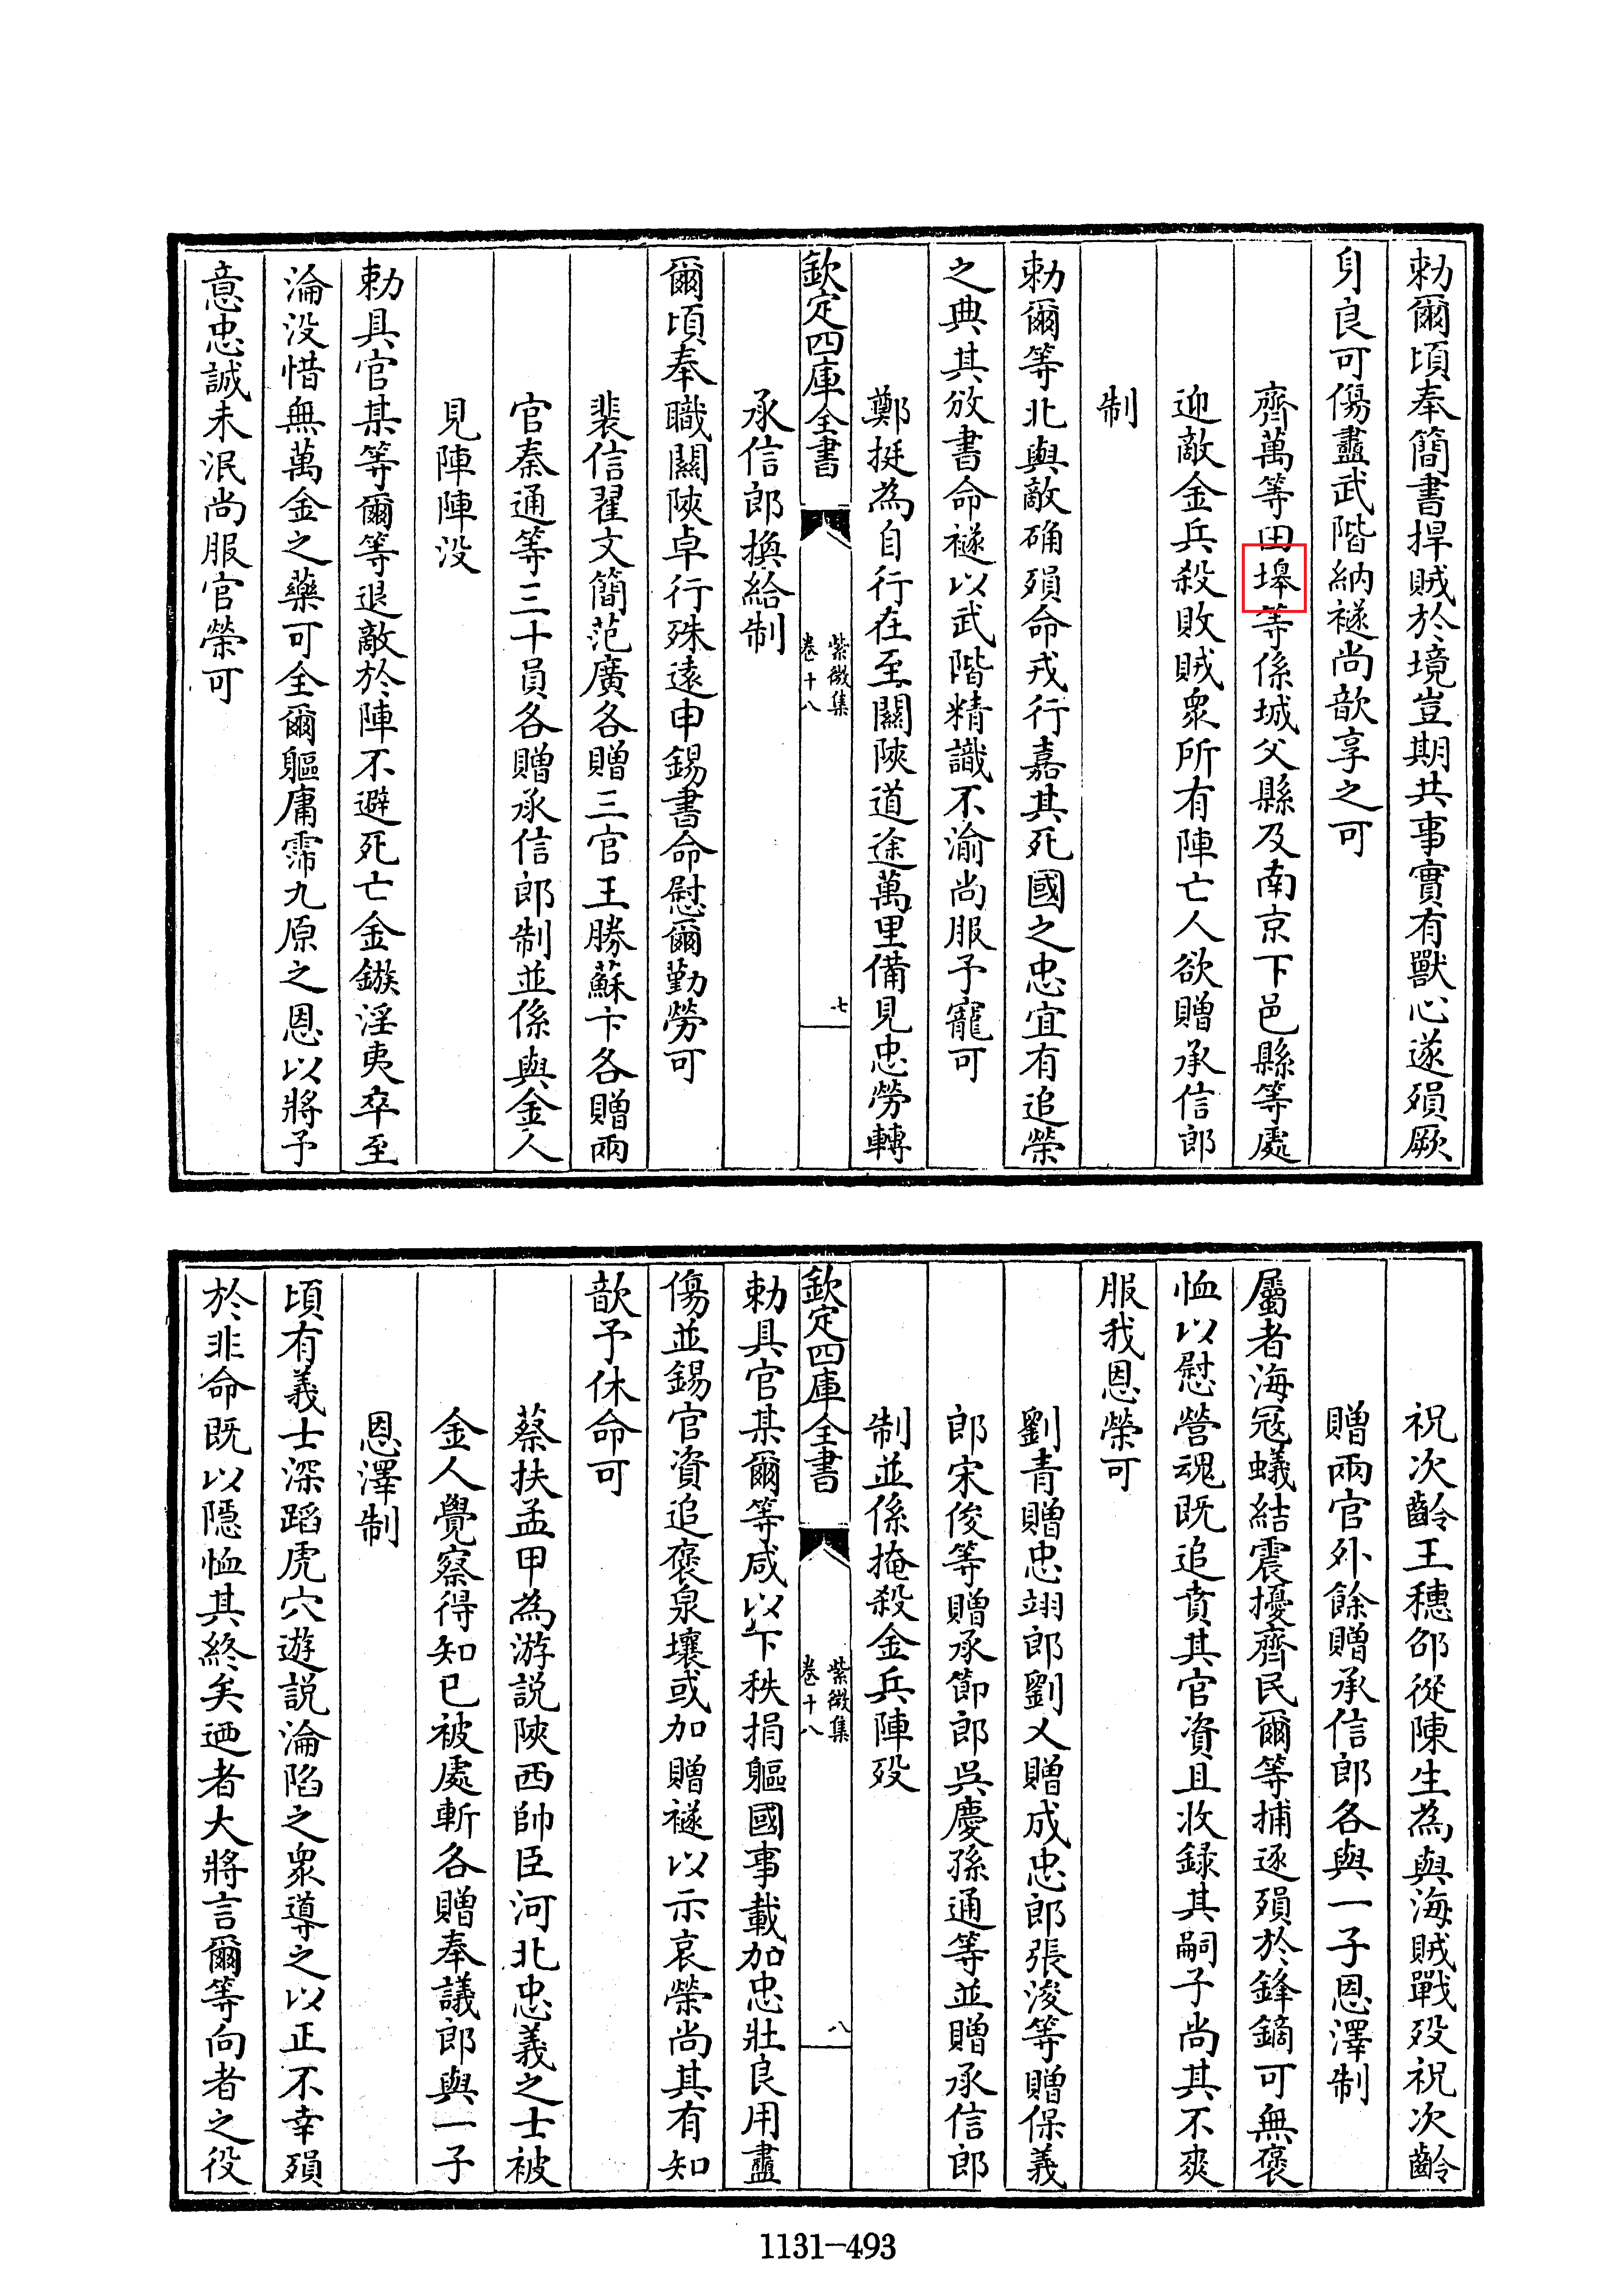 勅爾頃奉簡書捍賊於境豈期共事實有獸心遂殞厥
身良可傷盡武階納襚尚歆享之可
齊萬等田墿等係城父縣及南京下邑縣等處
迎敵金兵殺敗賊衆所有陣亡人欲贈承信郎
制
勅爾等北與敵确殞命戎行嘉其死國之忠宜有追榮
之典其攽書命襚以武階精識不渝尚服予寵可
鄭挺為自行在至關陜道途萬里備見忠勞轉
欽定四庫全書
紫微集
卷十八
七
承信郎換給制
爾頃奉職關陜卓行殊遠申錫書命慰爾勤勞可
裴信翟文簡范廣各贈三官王勝蘇卞各贈兩
官秦通等三十員各贈承信郎制並係與金人
見陣陣没
勅具官某等爾等退敵於陣不避死亡金鏃淫夷卒至
淪没惜無萬金之藥可全爾軀庸霈九原之恩以將予
意忠誠未泯尚服官榮可
祝次齡王穗邵從陳生為與海賊戰殁祝次齡
贈兩官外餘贈承信郎各與一子恩澤制
屬者海冦蟻結震擾齊民爾等捕逐殞於鋒鏑可無褒
恤以慰營魂既追賁其官資且收録其嗣子尚其不爽
服我恩榮可
劉青贈忠翊郎劉乂贈成忠郎張浚等贈保義
郎宋俊等贈承節郎吳慶孫通等並贈承信郎
制並係掩殺金兵陣殁
欽定四庫全書
紫微集
卷十八
八
勅具官某爾等咸以下秩捐軀國事載加忠壯良用盡
傷並錫官資追褒泉壤或加贈襚以示哀榮尚其有知
歆予休命可
蔡扶孟甲為游説陜西帥臣河北忠義之士被
金人覺察得知已被處斬各贈奉議郎與一子
恩澤制
頃有義士深蹈虎穴遊説淪陷之衆導之以正不幸殞
於非命既以隱恤其終矣迺者大將言爾等向者之役
1131-493